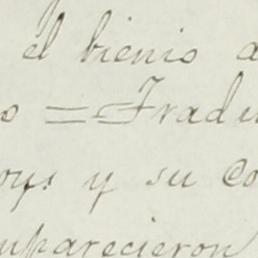 el bienio a
o = Tradu
oys y su co
mparecieron